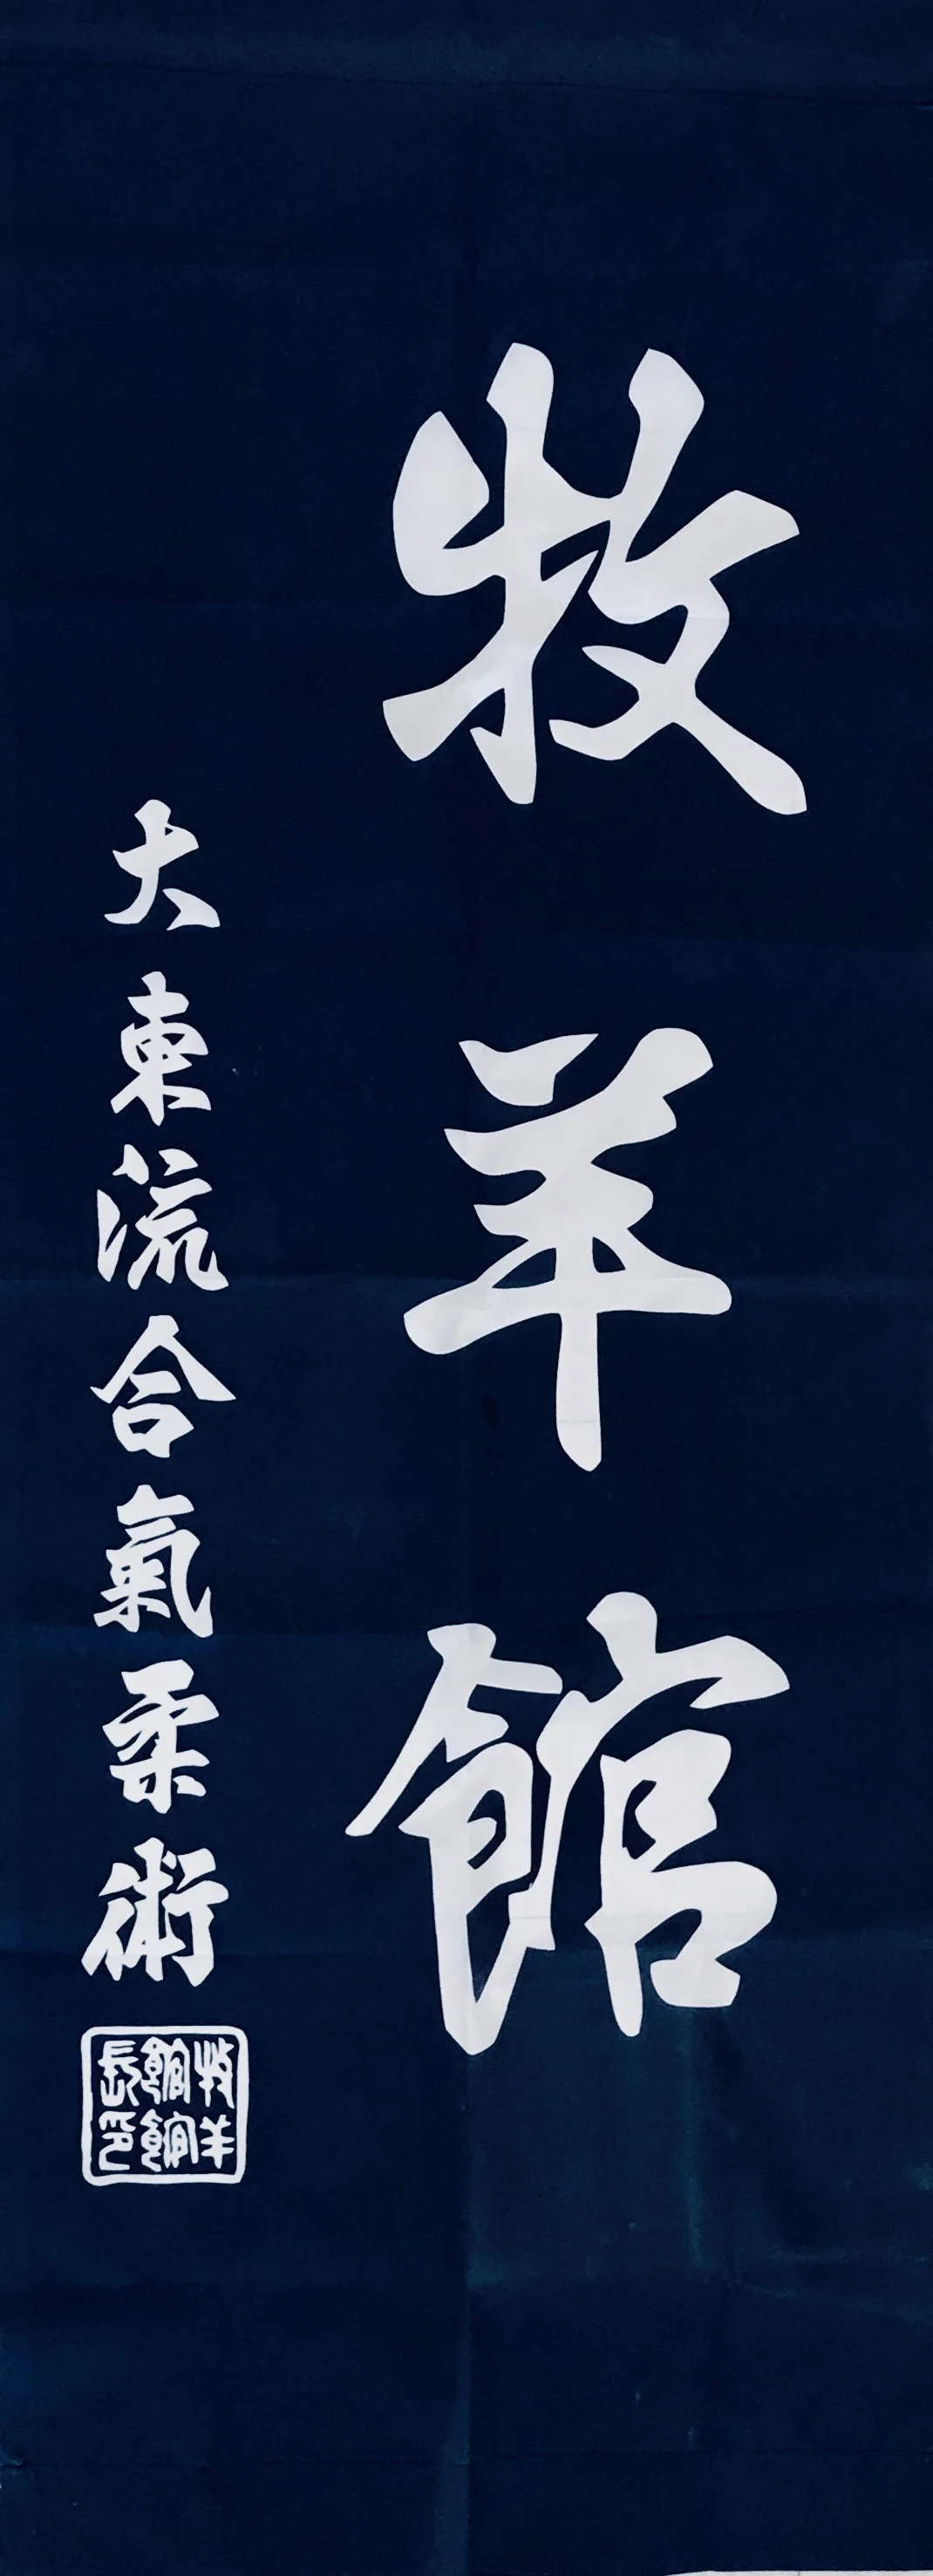 牧羊館
大東流合氣柔術
牧羊
館館
長印